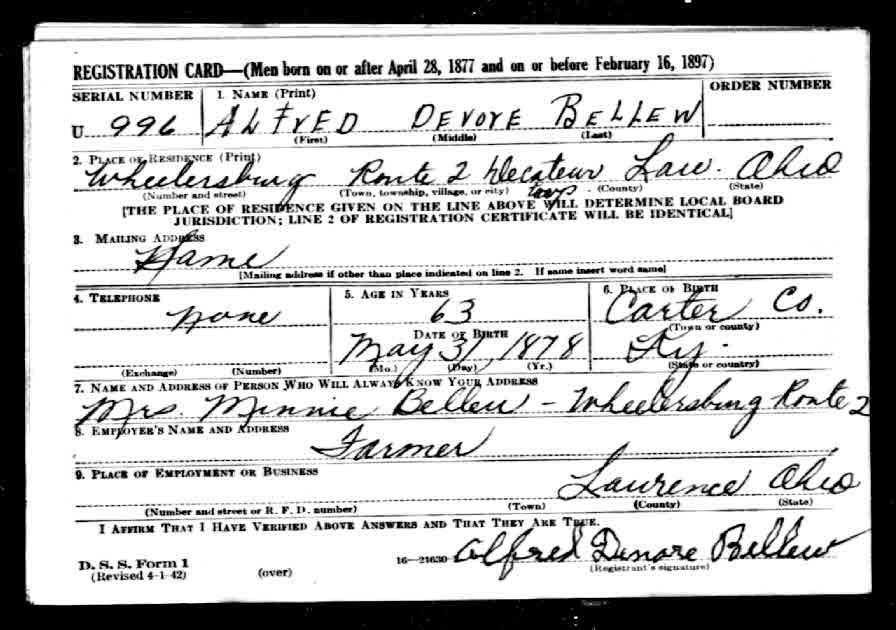 REGISTRATION CARD—(Men born on or after April 28, 1877 and on or before February 16, 1897)
SERIAL NUMBER 1. NAME (Print) ORDER NUMBER
U 996 ALFRED DEVORE BELLEW
(First) (Middle) (Last)
2. PLACE OF RESIDENCE (Print)
Wheelersburg Route 2 Decateur Law. Ohio
(Number and street) (Town, township, village, or city) twp. (County) (State)
[THE PLACE OF RESIDENCE GIVEN ON THE LINE ABOVE WILL DETERMINE LOCAL BOARD
JURISDICTION; LINE 2 OF REGISTRATION CERTIFICATE WILL BE IDENTICAL]
3. MAILING ADDRESS
Same
[Mailing address if other than place indicated on line 2. If same insert word same]
4. TELEPHONE 5. AGE IN YEARS 6. PLACE OF BIRTH
none 63 Carter Co.
DATE OF BIRTH (Town or county)
May 31, 1878 Ky.
(Exchange) (Number) (Mo.) (Day) (Yr.) (State or country)
7. NAME AND ADDRESS OF PERSON WHO WILL ALWAYS KNOW YOUR ADDRESS
Mrs. Minnie Bellew - Wheelersburg Route 2
8. EMPLOYER'S NAME AND ADDRESS
Farmer
9. PLACE OF EMPLOYMENT OR BUSINESS
Laurence Ohio
(Number and street or R. F. D. number) (Town) (County) (State)
I AFFIRM THAT I HAVE VERIFIED ABOVE ANSWERS AND THAT THEY ARE TRUE.
D. S. S. Form 1 16—21630 Alfred Denore Bellew
(Revised 4-1-42) (over) (Registrant's signature)